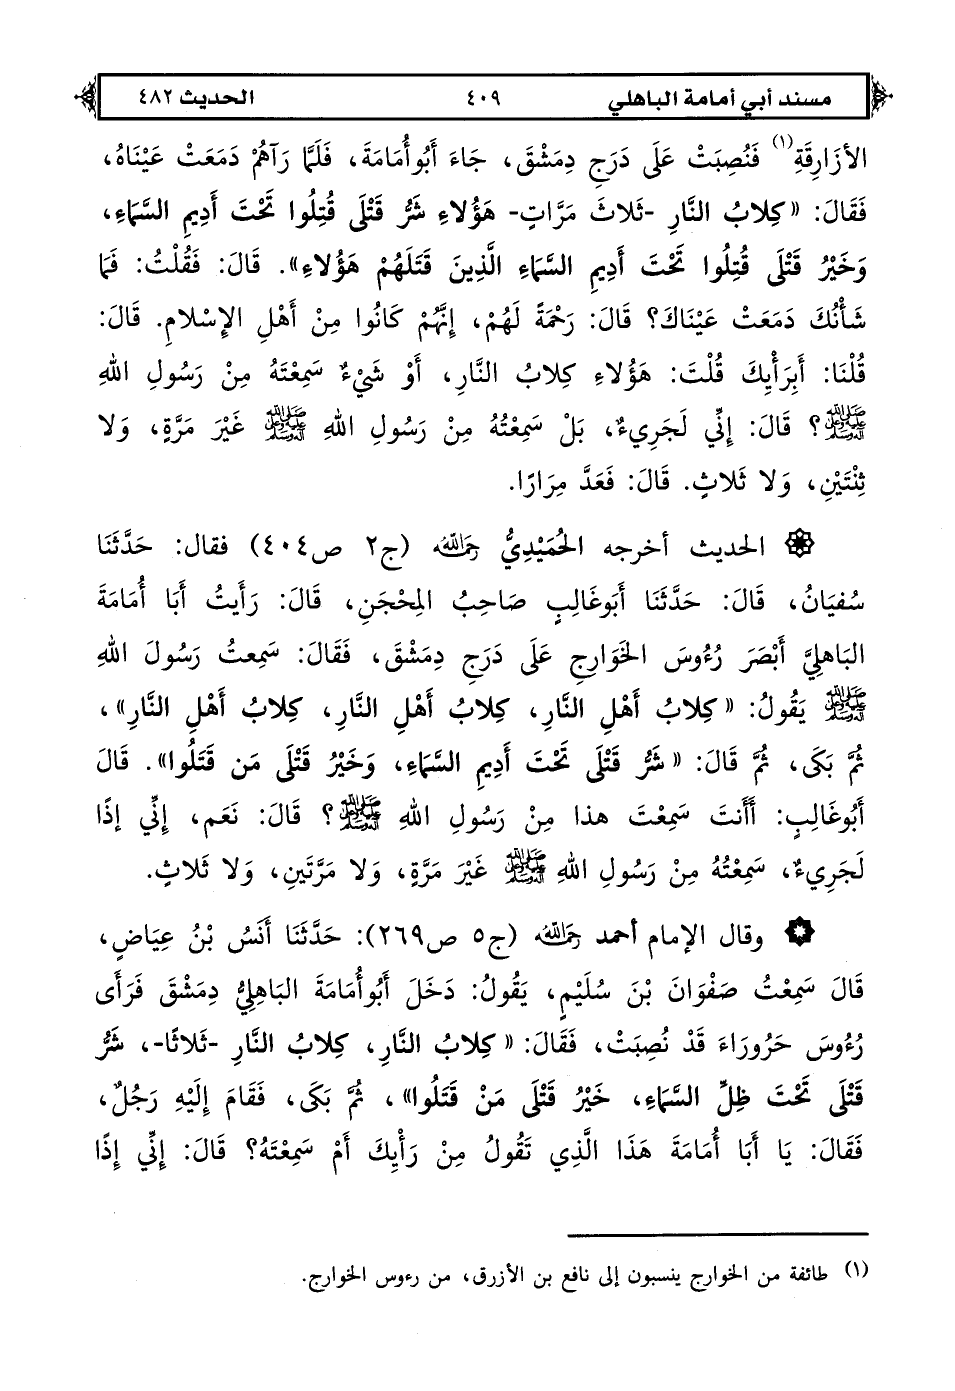 مسند أبي أمامة الباهلي ٤٠٩ الحديث ٤٨٢
الأزَارِقَةِ(١) فَنُصِبَتْ عَلَى دَرَجِ دِمَشْقَ، جَاءَ أَبُو أُمَامَةَ، فَلَمَّا رَآهُمْ دَمَعَتْ عَيْنَاهُ،
فَقَالَ: «كِلابُ النَّارِ -ثَلاثَ مَرَّاتٍ- هَؤُلاءِ شَرُّ قَتْلَى قُتِلُوا تَحْتَ أَدِيمِ السَّمَاءِ،
وَخَيْرُ قَتْلَى قُتِلُوا تَحْتَ أَدِيمِ السَّمَاءِ الَّذِينَ قَتَلَهُمْ هَؤُلاءِ». قَالَ: فَقُلْتُ: فَمَا
شَأْنُكَ دَمَعَتْ عَيْنَاكَ؟ قَالَ: رَحْمَةً لَهُمْ، إِنَّهُمْ كَانُوا مِنْ أَهْلِ الإِسْلامِ. قَالَ:
قُلْنَا: أَبِرَأْيِكَ قُلْتَ: هَؤُلاءِ كِلابُ النَّارِ، أَوْ شَيْءٌ سَمِعْتَهُ مِنْ رَسُولِ اللهِ
ﷺ؟ قَالَ: إِنِّي لَجَرِيءٌ، بَلْ سَمِعْتُهُ مِنْ رَسُولِ اللهِ ﷺ غَيْرَ مَرَّةٍ، وَلا
ثِنْتَيْنِ، وَلا ثَلاثٍ. قَالَ: فَعَدَّ مِرَارًا.
الحديث أخرجه الحُمَيْدِيُّ رحمه الله (ج٢ ص٤٠٤) فقال: حَدَّثَنَا
سُفيَانُ، قَالَ: حَدَّثَنَا أَبُوغَالِبٍ صَاحِبُ المِحْجَنِ، قَالَ: رَأَيتُ أَبَا أُمَامَةَ
البَاهِلِيَّ أَبْصَرَ رُءُوسَ الخَوَارِجِ عَلَى دَرَجِ دِمَشْقَ، فَقَالَ: سَمِعتُ رَسُولَ اللهِ
ﷺ يَقُولُ: «كِلابُ أَهْلِ النَّارِ، كِلابُ أَهْلِ النَّارِ، كِلابُ أَهْلِ النَّارِ»،
ثُمَّ بَكَى، ثُمَّ قَالَ: «شَرُّ قَتْلَى تَحْتَ أَدِيمِ السَّمَاءِ، وَخَيْرُ قَتْلَى مَن قَتَلُوا». قَالَ
أَبُوغَالِبٍ: أَأَنتَ سَمِعْتَ هذا مِنْ رَسُولِ اللهِ ﷺ؟ قَالَ: نَعَم، إِنِّي إذًا
لَجَرِيءٌ، سَمِعْتُهُ مِنْ رَسُولِ اللهِ ﷺ غَيْرَ مَرَّةٍ، وَلا مَرَّتَينِ، وَلا ثَلاثٍ.
وقال الإمام أحمد رحمه الله (ج٥ ص٢٦٩): حَدَّثَنَا أَنَسُ بْنُ عِيَاضٍ،
قَالَ سَمِعْتُ صَفْوَانَ بْنَ سُلَيْمٍ، يَقُولُ: دَخَلَ أَبُو أُمَامَةَ البَاهِلِيُّ دِمَشْقَ فَرَأَى
رُءُوسَ حَرُورَاءَ قَدْ نُصِبَتْ، فَقَالَ: «كِلابُ النَّارِ، كِلابُ النَّارِ -ثَلاثًا-، شَرُّ
قَتْلَى تَحْتَ ظِلِّ السَّمَاءِ، خَيْرُ قَتْلَى مَنْ قَتَلُوا»، ثُمَّ بَكَى، فَقَامَ إِلَيْهِ رَجُلٌ،
فَقَالَ: يَا أَبَا أُمَامَةَ هَذَا الَّذِي تَقُولُ مِنْ رَأْيِكَ أَمْ سَمِعْتَهُ؟ قَالَ: إِنِّي إِذًا
(١) طائفة من الخوارج ينسبون إلى نافع بن الأزرق، من رءوس الخوارج.